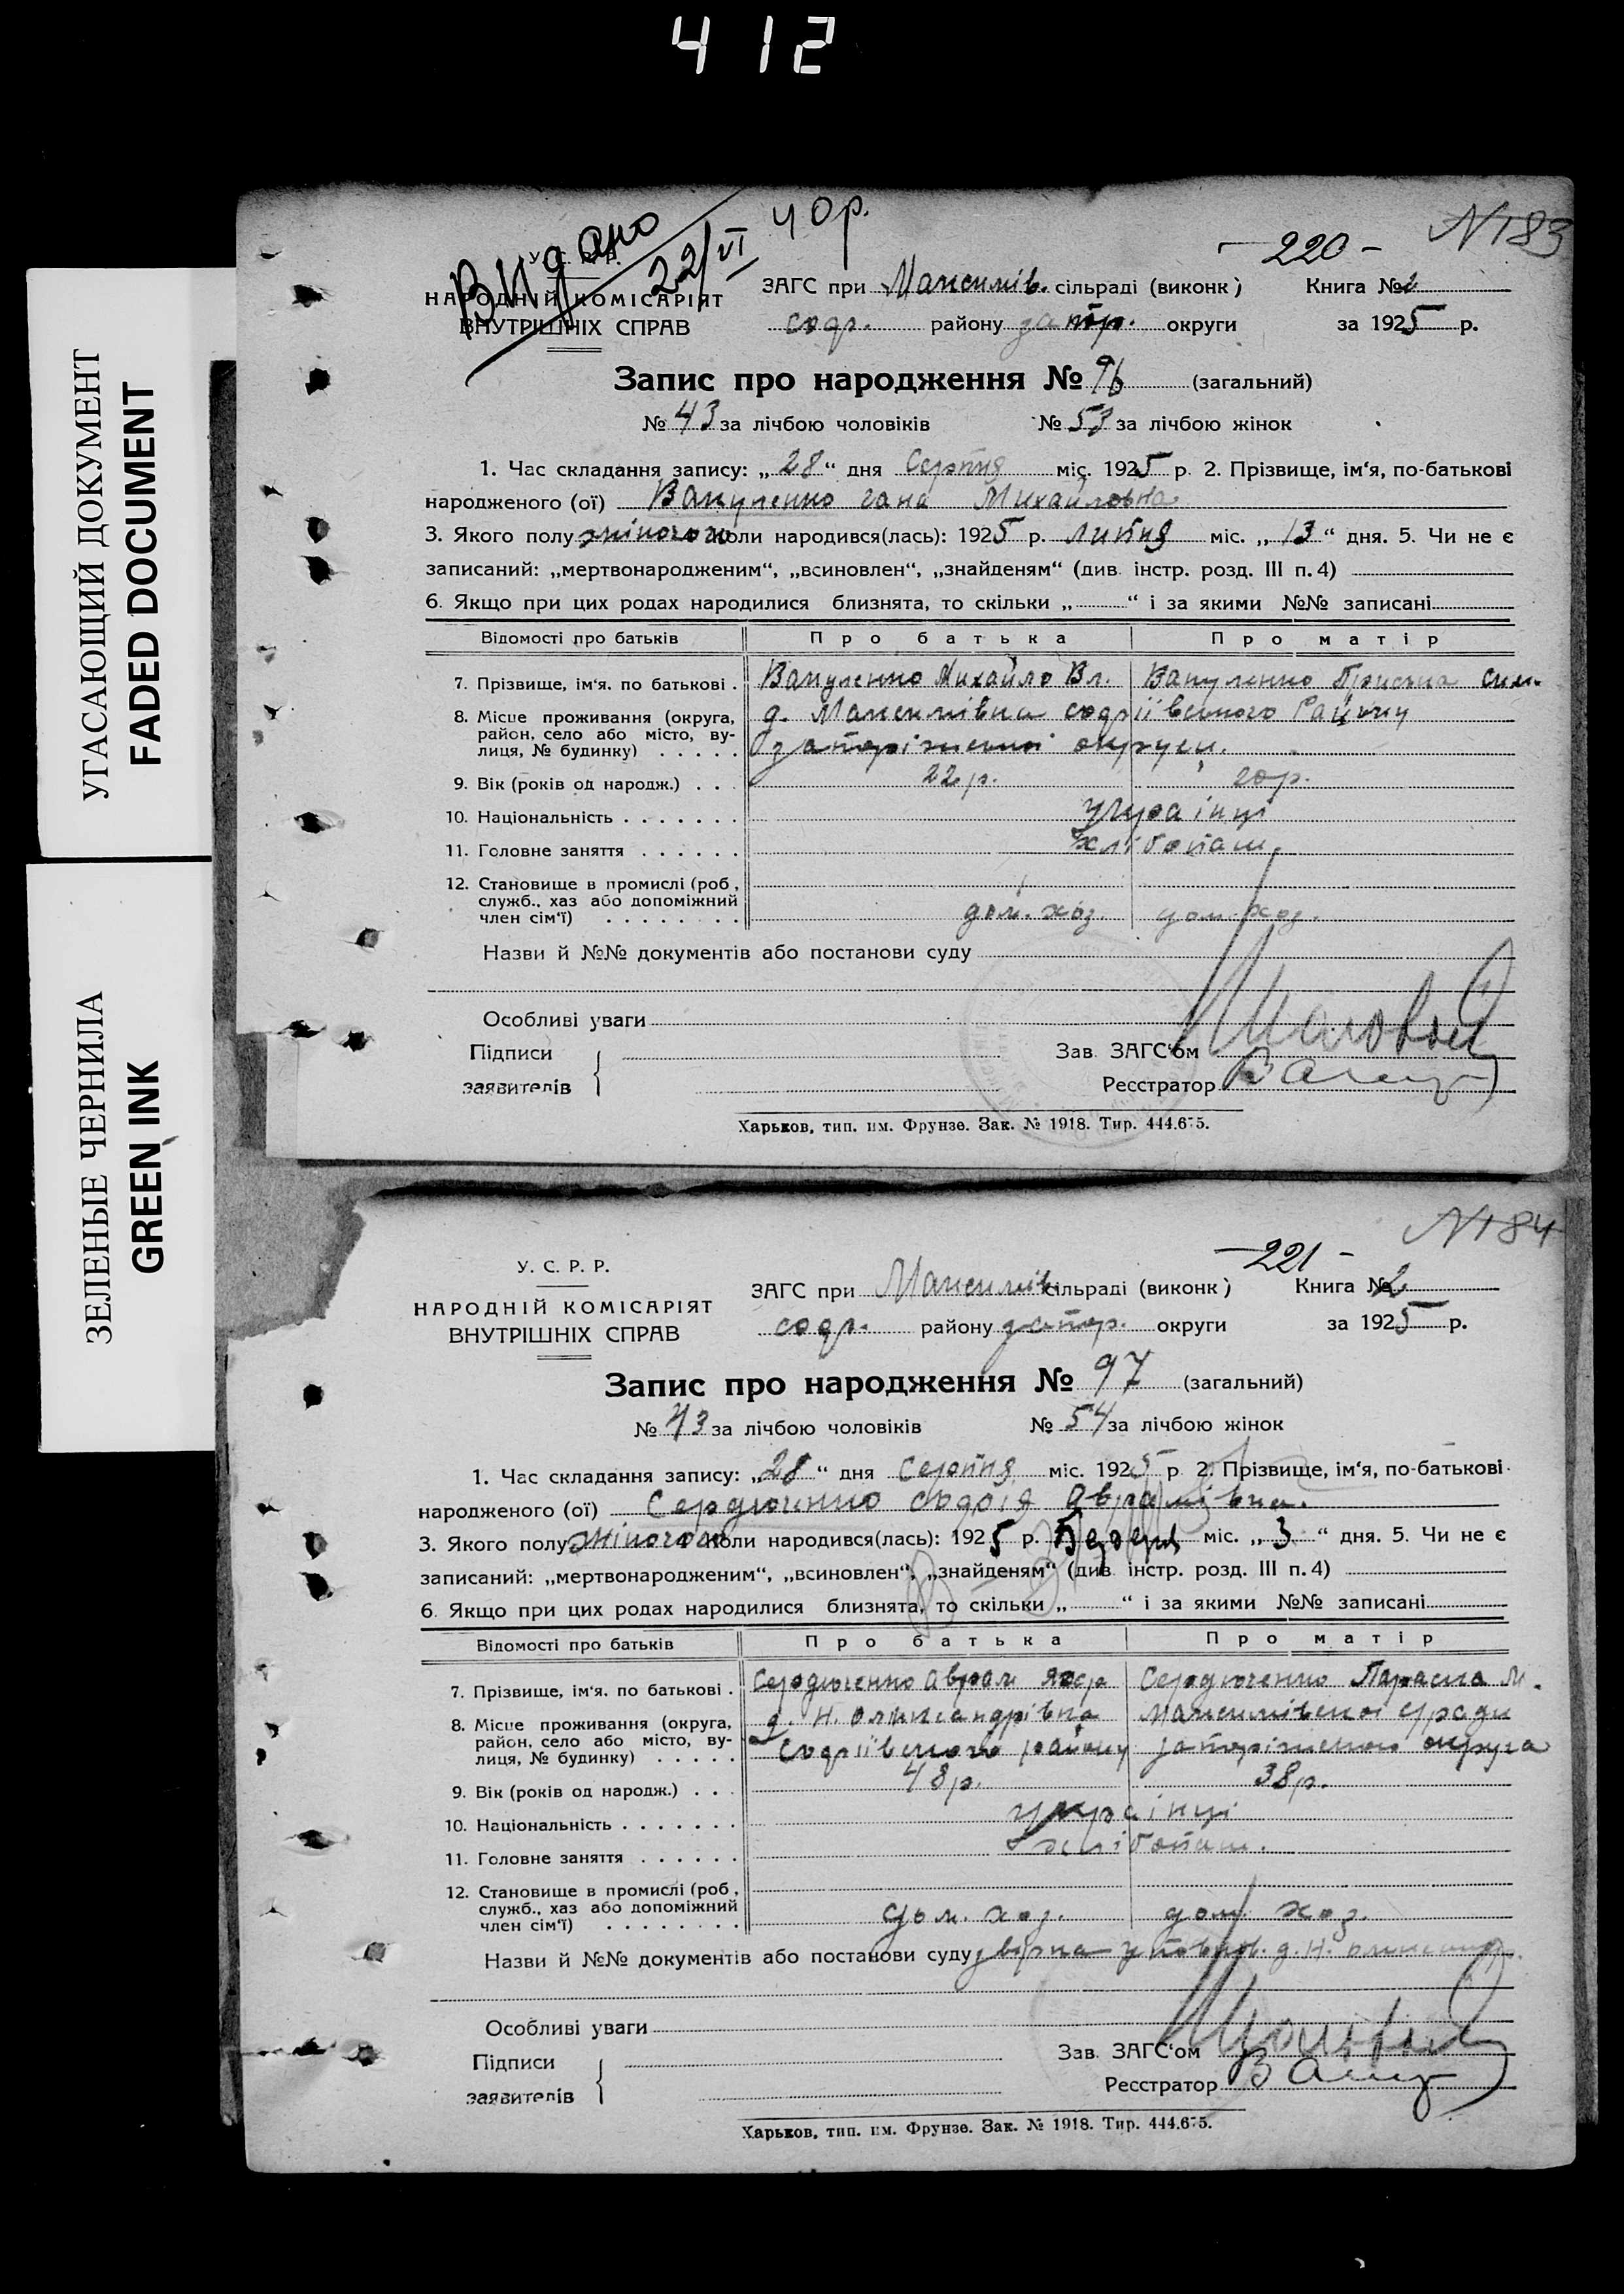 412
УГАСАЮЩИЙ ДОКУМЕНТ
FADED DOCUMENT
ЗЕЛЕНЫЕ ЧЕРНИЛА
GREEN INK
Видано 22/VI 40р.
N183
—220—
У. С. Р. Р.
НАРОДНІЙ КОМІСАРІЯТ
ВНУТРІШНІХ СПРАВ
ЗАГС при Максимів. сільраді (виконк) Книга № 2
софр. району запор. округи за 1925 р.
Запис про народження № 96 (загальний)
№ 43 за лічбою чоловіків № 53 за лічбою жінок
1. Час складання запису: „28“ дня Серпня міс. 1925 р. 2. Прізвище, ім‘я, по-батькові
народженого (ої) Вакуленко гана Михайловна
3. Якого полу жіночого коли народився(лась): 1925 р. липня міс. „13“ дня. 5. Чи не є
записаний: „мертвонародженим“, „всиновлен“, „знайденям“ (див. інстр. розд. III п. 4)
6. Якщо при цих родах народилися близнята, то скільки „ “ і за якими №№ записані
Відомості про батьків Про батька Про матір
7. Прізвище, ім‘я. по батькові . Вакуленко Михайло Вл. Вакуленко Приська Сим.
8. Місце проживання (округа, район, село або місто, ву-лиця, № будинку) . . . . . д. Максимівка софіівського Району
запоріжської округи.
9. Вік (років од народж.) . . . 22р. 20р.
10. Національність . . . . . . . українці
11. Головне заняття . . . . . . хлібопаш.
12. Становище в промислі (роб., служб., хаз або допоміжний член сім‘ї) . . . . . . . . дом. хоз. дом. хоз.
Назви й №№ документів або постанови суду
Особливі уваги
Підписи
заявителів
Зав. ЗАГС‘ом
Реєстратор
Харьков, тип. им. Фрунзе. Зак. № 1918. Тир. 444.675.
N184
—221—
У. С. Р. Р.
НАРОДНІЙ КОМІСАРІЯТ
ВНУТРІШНІХ СПРАВ
ЗАГС при Максимів. сільраді (виконк) Книга № 2
софр. району запор. округи за 1925 р.
Запис про народження № 97 (загальний)
№ 43 за лічбою чоловіків № 54 за лічбою жінок
1. Час складання запису: „28“ дня Серпня міс. 1925 р. 2. Прізвище, ім‘я, по-батькові
народженого (ої) Сердюченко Аврамівна.
3. Якого полу жіночого коли народився(лась): 1925 р. міс. „3“ дня. 5. Чи не є
записаний: „мертвонародженим“, „всиновлен“, „знайденям“ (див. інстр. розд. III п. 4)
6. Якщо при цих родах народилися близнята, то скільки „ “ і за якими №№ записані
Відомості про батьків Про батька Про матір
7. Прізвище, ім‘я. по батькові . Сердюченко Аврам Сердюченко Параска М.
8. Місце проживання (округа, район, село або місто, ву-лиця, № будинку) . . . . . д. Н. Олександрівка Максимівської с/ради
Софіівського району запоріжської округа
9. Вік (років од народж.) . . . 48р. 38р.
10. Національність . . . . . . . українці
11. Головне заняття . . . . . . хлібопаш.
12. Становище в промислі (роб., служб., хаз або допоміжний член сім‘ї) . . . . . . . . дом. хоз. дом. хоз.
Назви й №№ документів або постанови суду д. Н.
Особливі уваги
Підписи
заявителів
Зав. ЗАГС‘ом
Реєстратор
Харьков, тип. им. Фрунзе. Зак. № 1918. Тир. 444.675.